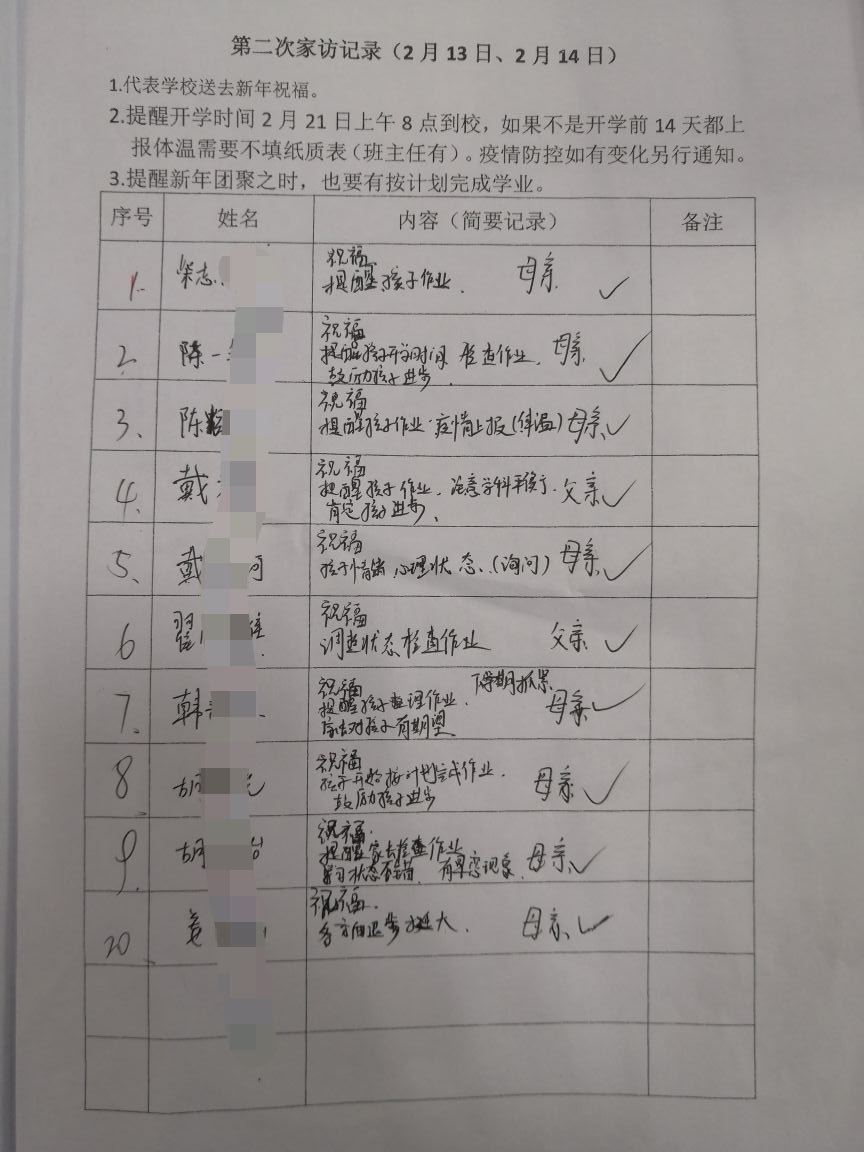 第二次家访记录（2月13日、2月14日）
1.代表学校送去新年祝福。
2.提醒开学时间2月21日上午8点到校，如果不是开学前14天都上
报体温需要不填纸质表（班主任有）。疫情防控如有变化另行通知。
3.提醒新年团聚之时，也要有按计划完成学业。
序号 姓名 内容（简要记录） 备注
祝福
1. 志 提醒孩子作业. 母亲 ✓
祝福
2 陈一 提醒孩子开学时间 检查作业. 母亲 ✓
鼓励孩子进步.
祝福
3、 陈 提醒孩子作业.疫情上报(体温) 母亲 ✓
祝福
4. 戴 提醒孩子作业. 注意学科平衡. 父亲 ✓
肯定孩子进步、
祝福
5、 戴 孩子情绪,心理状态、(询问) 母亲 ✓
祝福
6 调整状态检查作业 父亲 ✓
祝福
7. 韩 提醒孩子整理作业. 母亲 ✓
对孩子有期望
祝福
8 胡 孩子开始按计划完成作业. 母亲 ✓
鼓励孩子进步
祝福.
9. 胡 提醒家长检查作业
状态 有早恋现象. 母亲 ✓
祝福.
10 姜 各方面进步挺大. 母亲、 ✓